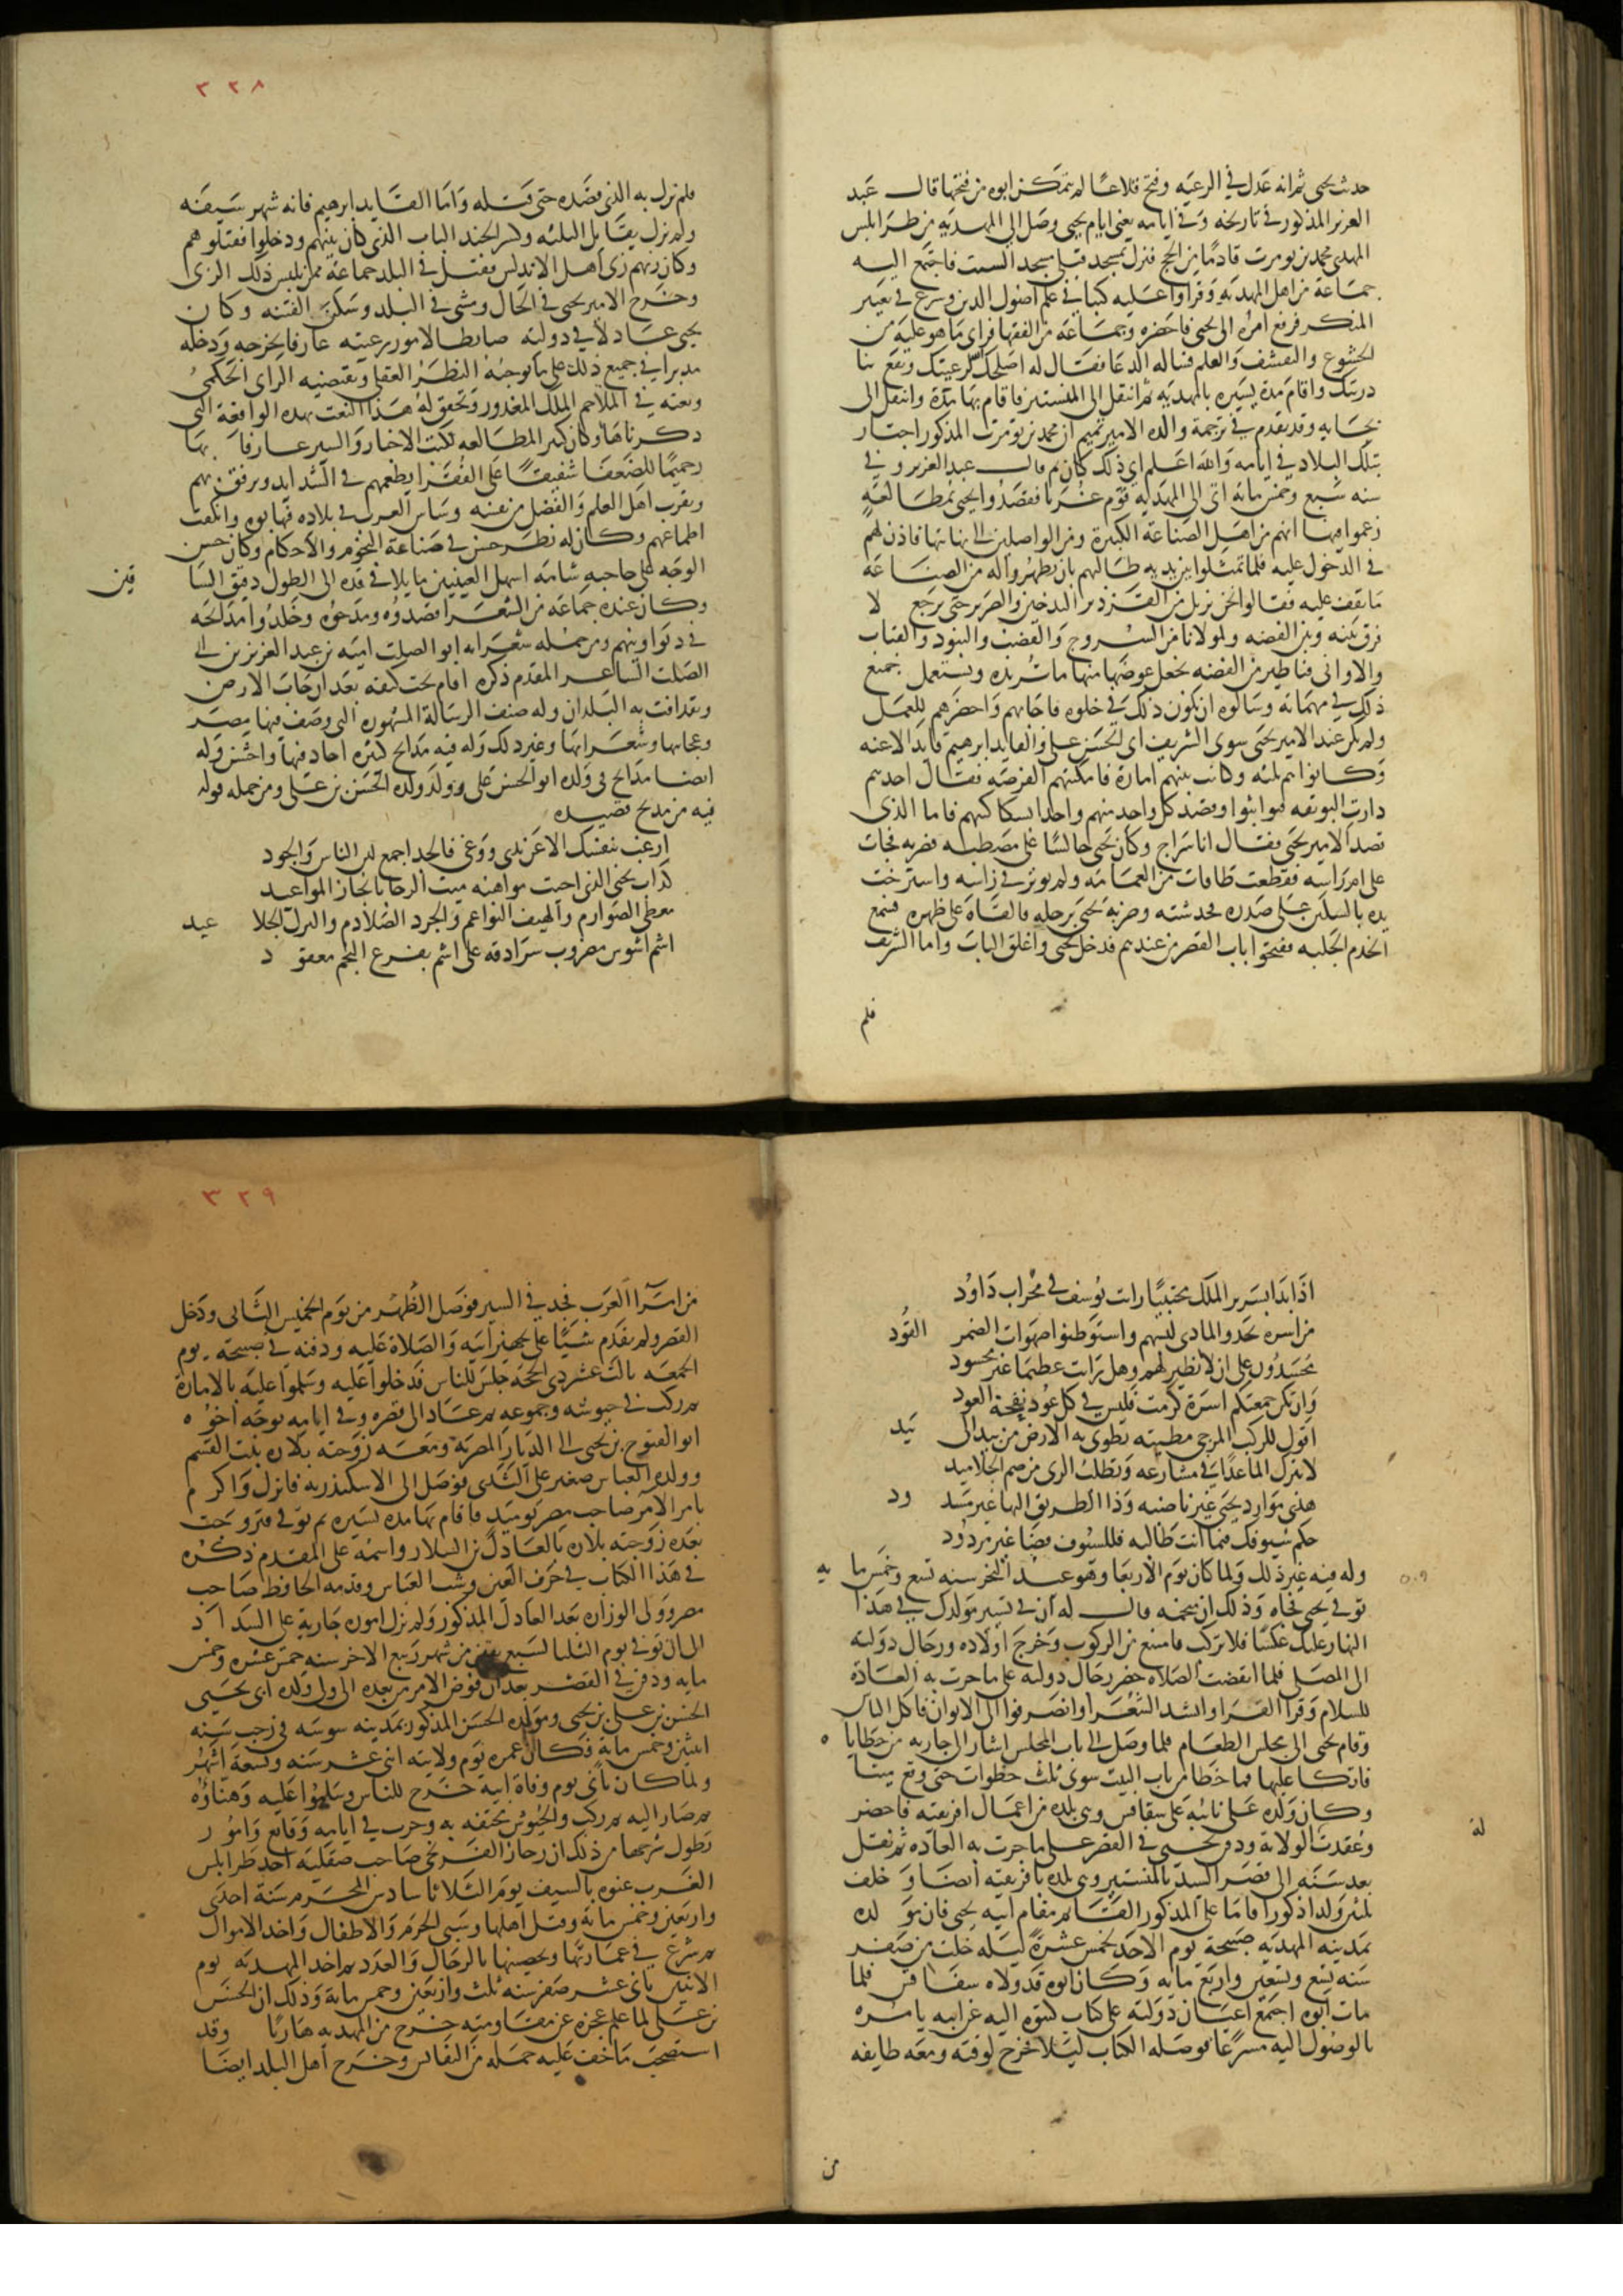 حدث يحيى ثم انه عدل في الرعيه وفتح قلاعا لم يتمكن ابوه من فتحها قال عبد
العزيز المذكور في تاريخه وفي ايامه يعني ايام يحيى وصل الى المهديه من طرابلس
المهدي محمد بن تومرت قادما من الحج فنزل بمسجد قبلي مسجد السبت فاجتمع اليه
جماعة من اهل المهديه وقراوا عليه كتبا في علم اصول الدين وشرع في تغيير
المنكر فرفع امره الى يحيى فاحضره وجماعة من الفقها فراى ما هو عليه من
الخشوع والتقشف والعلم فساله الدعا فقال له اصلحك الله لرعيتك ونفع بنا
دريتك واقام مدة يسيره بالمهديه ثم انتقل الى المنستير فاقام بها مدة وانتقل الى
بجايه وقد تقدم في ترجمة والده الامير تميم ان محمد بن تومرت المذكور اجتاز
بتلك البلاد في ايامه والله اعلم اي ذلك كان ثم قال عبد العزيز وفي
سنه سبع وخمس مائه اتى الى المهديه قوم غربا فقصدوا يحيى بمطالعة
زعموا فيها انهم من اهل الصناعة الكبيرة ومن الواصلين الى نهايتها فاذن لهم
في الدخول عليه فلما تمثلوا بين يديه طالبهم بان يظهروا له من الصناعة
ما يقف عليه فقالوا نحن نزيل من القزدير التدخين والصرير حتى يرجع لا
فرق بينه وبين الفضه ولمولانا من السروج والقضب والبنود والقباب
والاواني قناطير من الفضه نجعل عوضها منها ما تريده وتستعمل جميع
ذلك في مهماته وسالوه ان يكون ذلك في خلوه فاجابهم واحضرهم للعمل
ولم يكن عند الامير يحيى سوى الشريف ابي الحسن علي والقايد ابرهيم قايد الاعنه
وكانوا هم ثلثه وكانت بينهم امارة فامكنتهم الفرصه فقال احدهم
دارت البوتقه فتواثبوا وقصد كل واحد منهم واحدا بسكاكينهم فاما الذي
قصد الامير يحيى فقال انا سراج وكان يحيى جالسا على مصطبه فضربه فجات
على ام راسه فقطعت طاقات من العمامة ولم يوثر في راسه واسترخت
يده بالسكين على صدره فخدشته وضربه يحيى برجله فالقاه على ظهره فسمع
الخدم الجلبه ففتحوا باب القصر من عندهم فدخل يحيى واغلق الباب واما الشريف
فلم
٣٢٨
فلم يزل به الذي قصده حتى قتله واما القايد ابرهيم فانه شهر سيفه
ولم يزل يقاتل الثلثه وكسر الجند الباب الذي كان بينهم ودخلوا فقتلوهم
وكان زيهم زي اهل الاندلس فقتل في البلد جماعة ممن يلبس ذلك الزي
وخرج الامير يحيى في الحال ومشى في البلد وسكن الفتنه وكان
يحيى عادلا في دولته ضابطا لامور رعيته عارفا بخرجه ودخله
مدبرا في جميع ذلك على ما يوجبه النظر العقلي ويقتضيه الراي الحكمي
ونعته في الملاحم الملك المغدور وتحقق له هذا النعت بهذه الواقعة التي
ذكرناها وكان كثير المطالعه لكتب الاخبار والسير عارفا بها
رحيما للضعفا شفيقا على الفقرا يطعمهم في الشدايد ويرفق بهم
ويقرب اهل العلم والفضل من نفسه وساس العرب في بلاده فهابوه وانكفت
اطماعهم وكان له نظر حسن في صناعة النجوم والاحكام وكان حسن
الوجه على حاجبه شامه اشهل العينين مايلا في قده الى الطول دقيق السا قين
وكان عنده جماعة من الشعرا قصدوه ومدحوه وخلدوا مدائحه
في دواوينهم ومن جمله شعرايه ابو الصلت اميه بن عبد العزيز بن ابي
الصلت الشاعر المقدم ذكره اقام تحت كنفه بعد ان جاب الارض
وتقاذفت به البلدان وله صنف الرسالة المشهوره التي وصف فيها مصر
وعجايبها وشعراها وغير ذلك وله فيه مدايح كثيره اجاد فيها واحسن وله
ايضا مدايح في ولده ابو الحسن علي وولد ولده الحسن بن علي ومن جمله قوله
فيه من مديح قصيده
ارغب بنفسك الا عن ندى ووغى فالمجد اجمع بين الباس والجود
كداب يحيى الذي احيت مواهبه ميت الرجا بانجاز المواعيد
معطي الصوارم والهيف النواعم والجرد الصلادم والبزل الجلا عيد
اشم اشوس مضروب سرادقه على اشم بفرع النجم معقو د
اذا بدا بسرير الملك محتبيا رايت يوسف في محراب داوُد
من اسرة تخذوا الماذي لبسهم واستوطنوا صهوات الضمر القُود
محسدُون على ان لا نظير لهم وهل رايت عظيما غير محسود
وان يكن جمعتكم اسرة كرمت فليس في كل عُود نفحة العود
اقول للركب المزجي مطيته يطوي به الارض من بيد الى بيد
لا تترك الما عدّا في مشارعه وتطلب الري من صم الجلاميد
هذي موارد يحيى غير ناضبه وذا الطريق اليها غير مسد ود
حكم سيوفك فيما انت طالبه فللسيوف قضا غير مردُود
وله فيه غير ذلك ولما كان يوم الاربعا وهو عيد النحر سنه تسع وخمس مايه
٥٠٩
توفي يحيى فجاه وذلك ان منجمه قال له ان في تسيير مولدك في هذا
النهار عليك عكسا فلا تركب فامتنع من الركوب وخرج اولاده ورجال دولته
الى المصلى فلما انقضت الصلاه حضر رجال دولته على ما جرت به العادة
للسلام وقرا القرا وانشد الشُعرا وانصرفوا الى الايوان فاكل الناس
وقام يحيى الى مجلس الطعام فلما وصل الى باب المجلس اشار الى جاريه من حظاياه
فاتكا عليها فما خطا من باب البيت سوى ثلث خطوات حتى وقع ميتا
وكان ولده علي نائبه على سفاقس وهي بلده من اعمال افريقيه فاحضر
وعُقدت له الولاية ودفن يحيى في القصر على ما جرت به العاده ثم نقل
بعد سنه الى قصر السيدة بالمنستير وهي بلده بافريقيه ايضا وخلف
ثلثين ولدا ذكورا فاما علي المذكور القائم مقام ابيه يحيى فان مولده
بمدينه المهديه صبيحة يوم الاحد لخمس عشرة ليله خلت من صفر
سنه تسع وسبعين واربع مايه وكان ابوه قد ولاه سفاقس فلما
مات ابوه اجتمع اعيان دولته على كتاب كتبوه اليه عن ابيه يامره
بالوصُول اليه مسرعا فوصله الكتاب ليلا فخرج لوقته ومعه طايفه
من
٣٢٩
من امرا العرب فجد في السير فوصل الظهر من يوم الخميس الثاني ودخل
القصر ولم يقدم شيئا على تجهيز ابيه والصلاة عليه ودفنه في صبيحه يوم
الجمعه ثالث عشر ذي الحجه جلس للناس فدخلوا عليه وسلموا عليه بالامارة
ثم ركب في جيوشه وجموعه ثم عاد الى قصره وفي ايامه توجه اخوه
ابو الفتوح بن يحيى الى الديار المصرية ومعه زوجته بلاره بنت القسم
وولده العباس صغير على الثدي فوصل الى الاسكندريه فانزل واكرم
بامر الآمر صاحب مصر يوميذ فاقام بها مده يسيره ثم توفي فتزوجت
بعده زوجته بلاره بالعادل بن السلار واسمه علي المقدم ذكره
في هذا الكتاب في حرف العين وشب العباس وقدمه الحافظ صاحب
مصر وولي الوزاره بعد العادل المذكور ولم تزل امور جارية على السداد
الى ان توفي يوم الثلثا لسبع بقين من شهر ربيع الاخر سنه خمس عشره وخمس
مايه ودفن في القصر بعد ان فوض الامر من بعده الى ولده ابي يحيى
الحسن بن علي بن يحيى ومولد الحسن المذكور بمدينه سوسه في رجب سنه
اثنتين وخمس مائه فكان عمره يوم ولايته اثني عشر سنه وتسعة اشهر
ولما كان ثاني يوم وفاة ابيه خرج للناس وسلموا عليه وهناؤه
بما صار اليه ثم ركب والجيوش تحتفه به وجرت في ايامه وقايع وامور
يطول شرحها من ذلك ان رجار الفرنجي صاحب صقليه اخد طرابلس
الغرب عنوه بالسيف يوم الثلاثا سادس المحرم سنة احدى
واربعين وخمس مائة وقتل اهلها وسبى الحرم والاطفال واخد الاموال
ثم شرع في عمارتها وتحصينها بالرجال والعدد ثم اخد المهديه يوم
الاثنين ثاني عشر صفر سنه ثلث واربعين وخمس مائة وذلك ان الحسن
بن علي لما علم عجزه عن مقاومته خرج من المهديه هاربا وقد
استصحب ما خف عليه حمله من النفائس وخرج اهل البلد ايضا